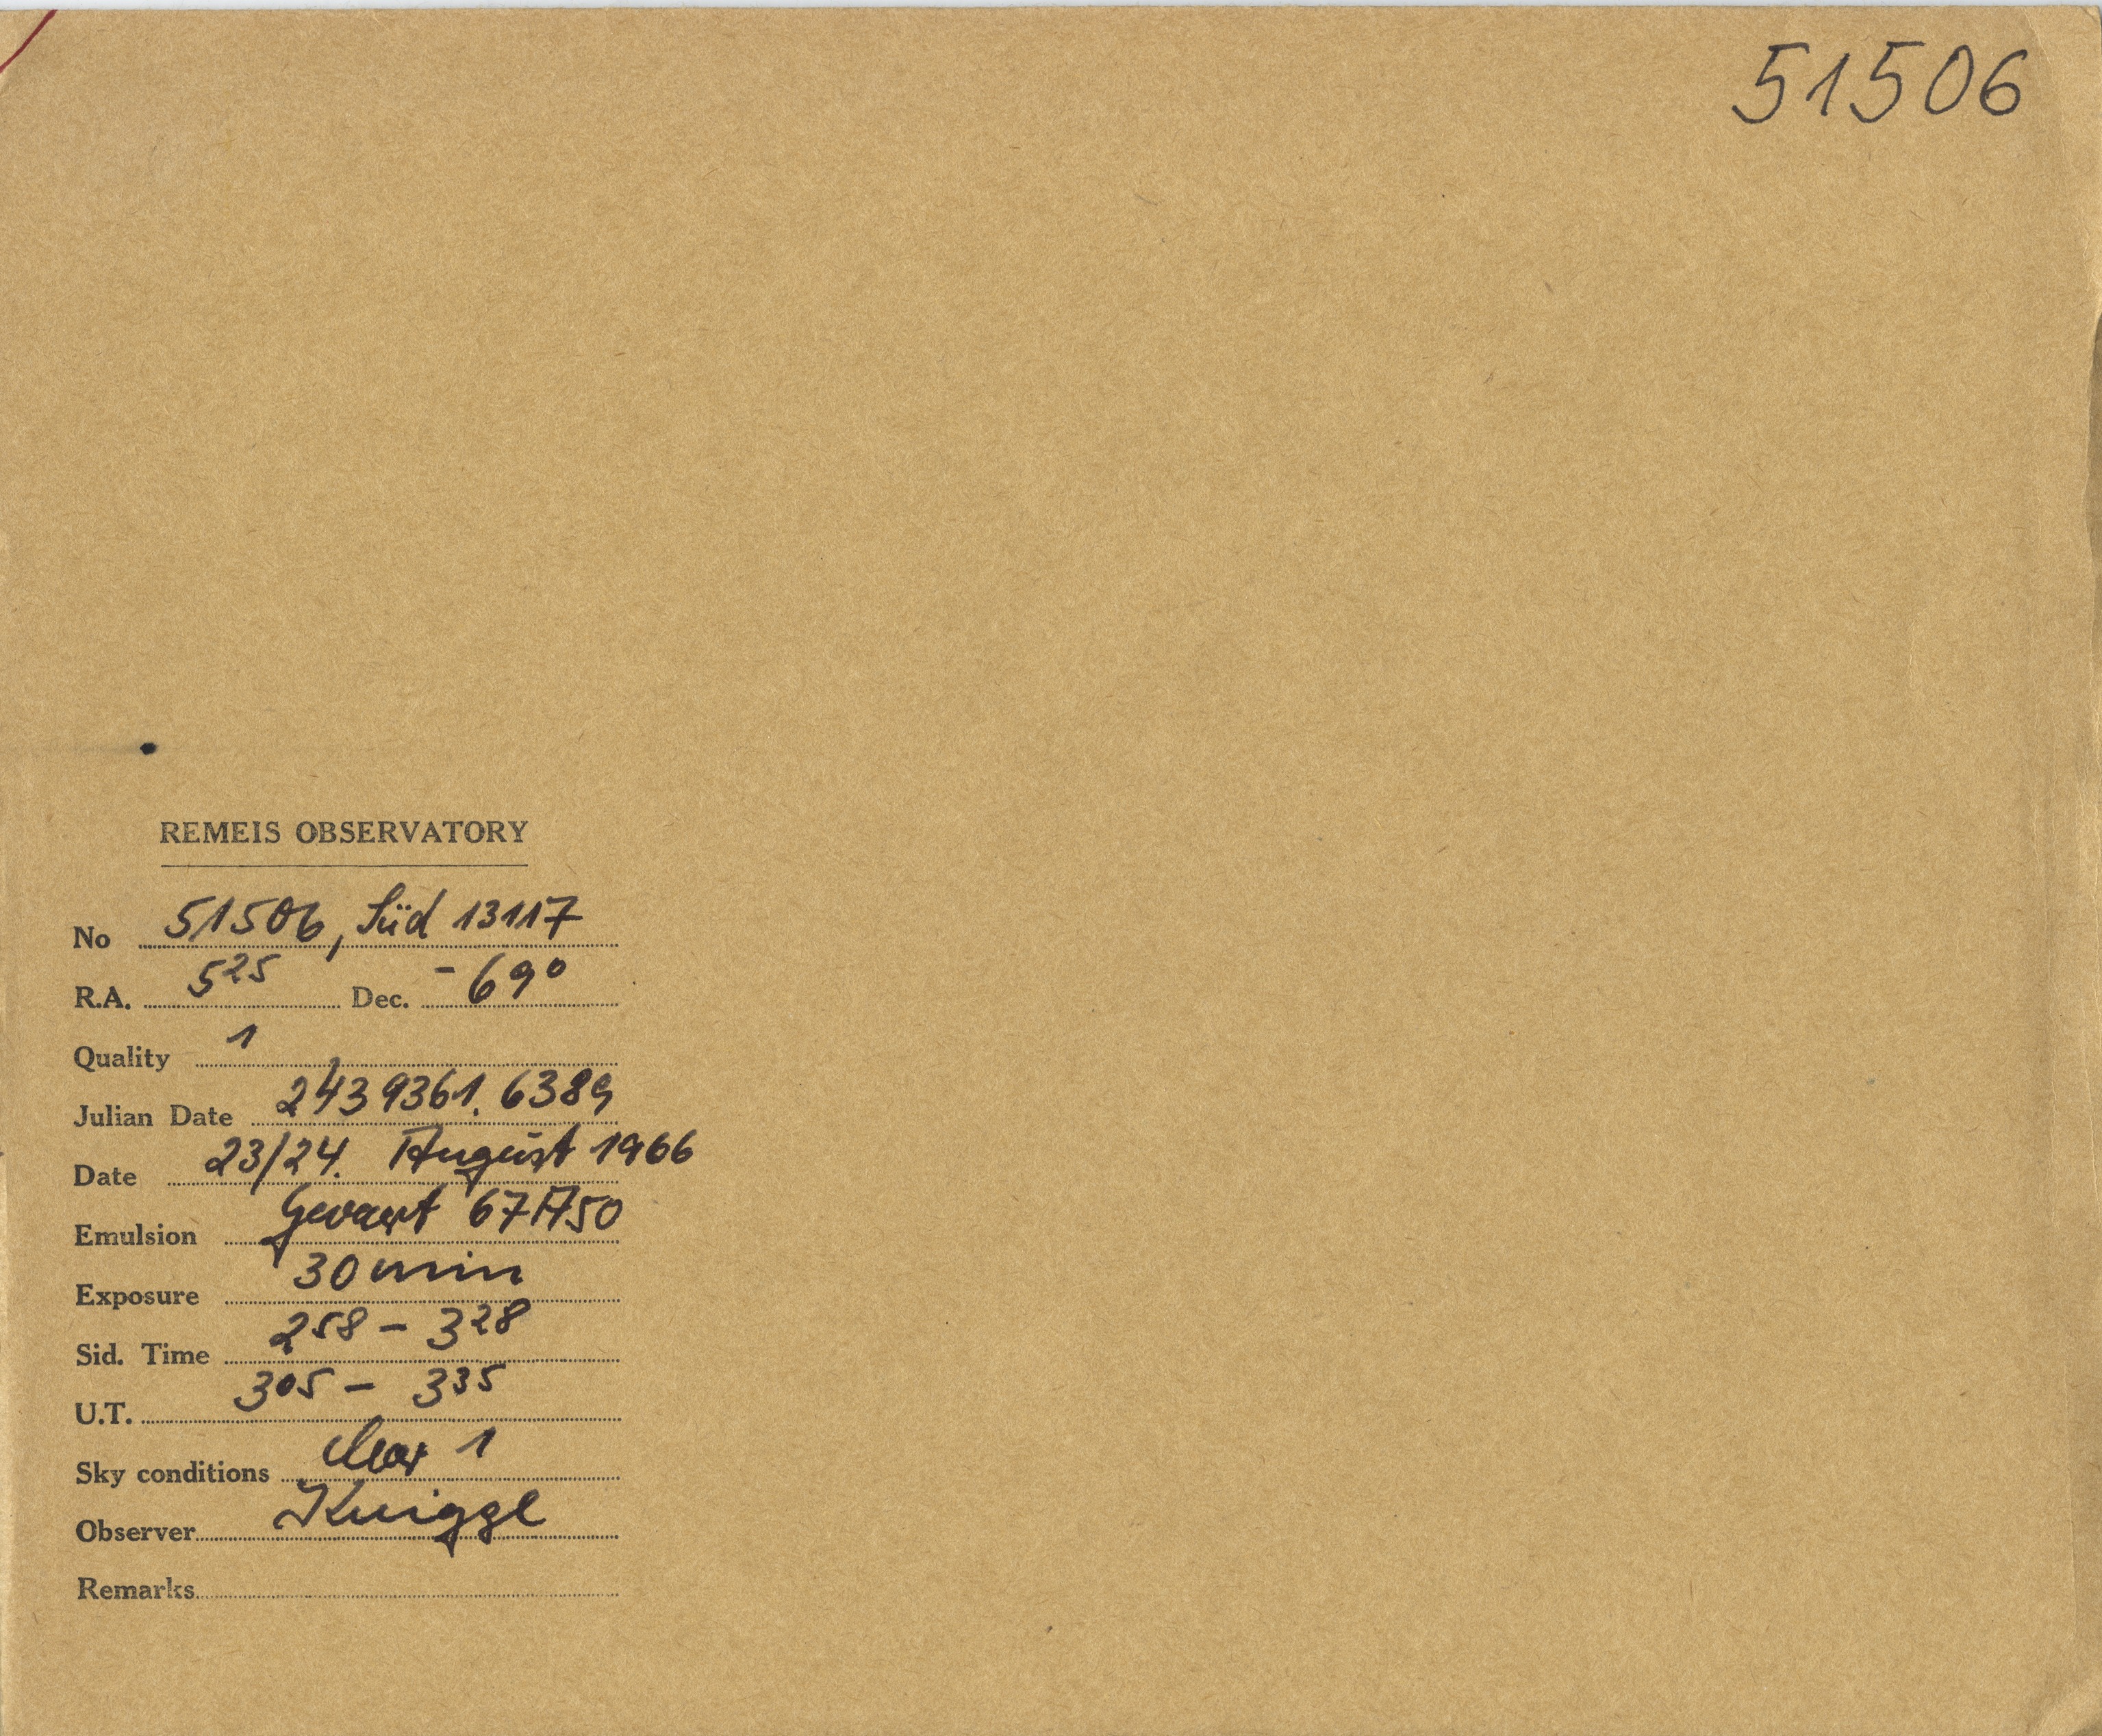 51506
REMEIS OBSERVATORY
No 51506, Süd 13117
R.A. 5 25 Dec. -69°
Quality 1
Julian Date 2439361.6389
Date 23/24. August 1966
Emulsion Gevaert 67A50
Exposure 30 min
Sid. Time 2 58 - 3 28
U.T. 3 05 - 3 35
Sky conditions clear 1
Observer Knigge
Remarks